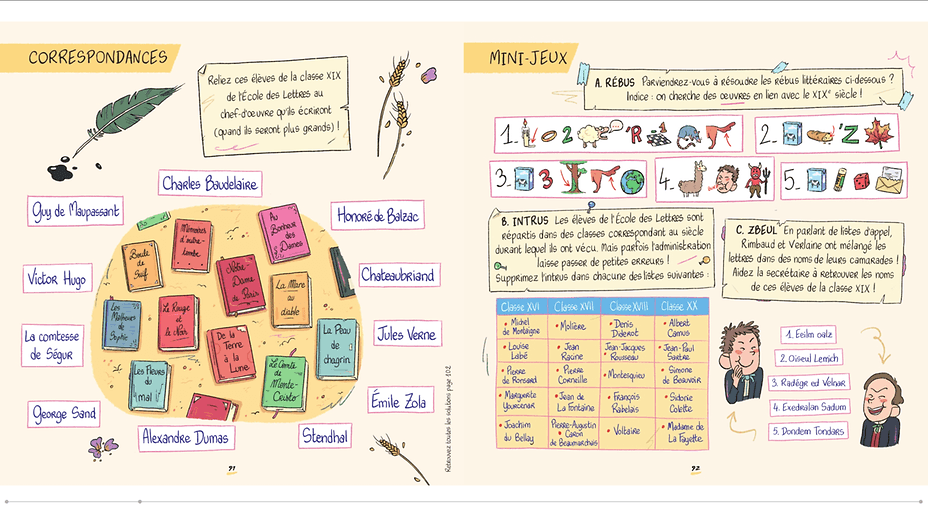 CORRESPONDANCES
Reliez ces élèves de la classe XIX
de l'École des Lettres au
chef-d'œuvre qu'ils écriront
(quand ils seront plus grands) !
Charles Baudelaire
Guy de Maupassant
Honoré de Balzac
Victor Hugo
Chateaubriand
La comtesse
de Ségur
Jules Verne
George Sand
Émile Zola
Alexandre Dumas
Stendhal
Boule
de
Suif
Mémoires
d'outre-
tombe
Au
Bonheur
des
Dames
Notre-
Dame
de Paris
La Mare
au
diable
Les
Malheurs
de
Sophie
Le Rouge
et
le Noir
De la
Terre
à la
Lune
La Peau
de
chagrin
Les Fleurs
du
mal
Le Comte
de
Monte-
Cristo
Retrouvez toutes les solutions page 102
91
MINI-JEUX
A. RÉBUS Parviendrez-vous à résoudre les rébus littéraires ci-dessous ?
Indice : on cherche des œuvres en lien avec le XIXe siècle !
1. 2 'R
2. 'Z
3. 3
4.
5.
B. INTRUS Les élèves de l'École des Lettres sont
répartis dans des classes correspondant au siècle
durant lequel ils ont vécu. Mais parfois l'administration
laisse passer de petites erreurs !
Supprimez l'intrus dans chacune des listes suivantes :
C. ZBEUL En parlant de listes d'appel,
Rimbaud et Verlaine ont mélangé les
lettres dans des noms de leurs camarades !
Aidez la secrétaire à retrouver les noms
de ces élèves de la classe XIX !
Classe XVI Classe XVII Classe XVIII Classe XX
• Michel de Montaigne • Molière • Denis Diderot • Albert Camus
• Louise Labé • Jean Racine Jean-Jacques Rousseau • Jean-Paul Sartre
• Pierre de Ronsard • Pierre Corneille • Montesquieu • Simone de Beauvoir
• Marguerite Yourcenar • Jean de La Fontaine • François Rabelais • Sidonie Colette
• Joachim du Bellay Pierre-Augustin • Caron de Beaumarchais • Voltaire • Madame de La Fayette
1. Eeilm oalz
2. Oiseul Lemich
3. Radégr ed Velnar
4. Exedralan Sadum
5. Dondem Tondars
92